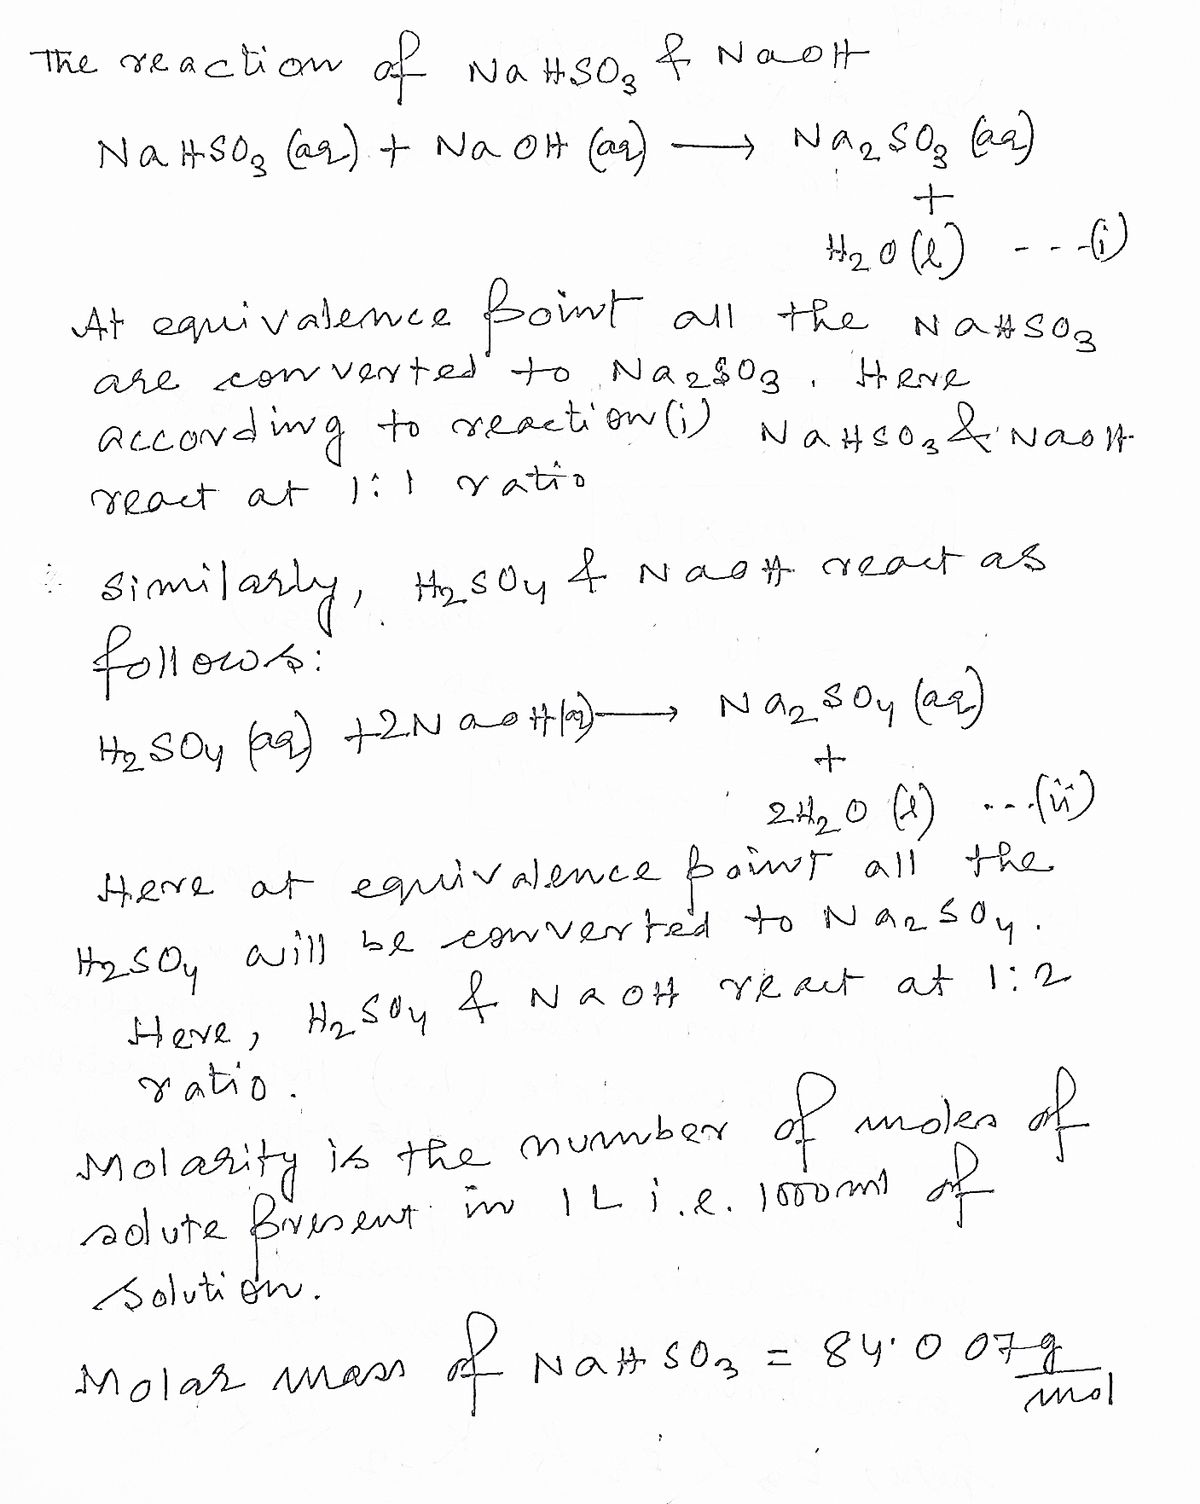 The reaction of NaHSO₃ & NaOH
NaHSO₃ (aq) + NaOH (aq) ⟶ Na₂SO₃ (aq)
+
H₂O (l) ---(i)
At equivalence point all the NaHSO₃
are converted to Na₂SO₃. Here
according to reaction (i) NaHSO₃ & NaOH
react at 1:1 ratio
Similarly, H₂SO₄ & NaOH react as
follows:
H₂SO₄ (aq) + 2NaOH (aq) ⟶ Na₂SO₄ (aq)
+
2H₂O (l) ...(ii)
Here at equivalence point all the
H₂SO₄ will be converted to Na₂SO₄.
Here, H₂SO₄ & NaOH react at 1:2
ratio.
Molarity is the number of moles of
solute present in 1L i.e. 1000ml of
solution.
Molar mass of NaHSO₃ = 84.007 g/mol